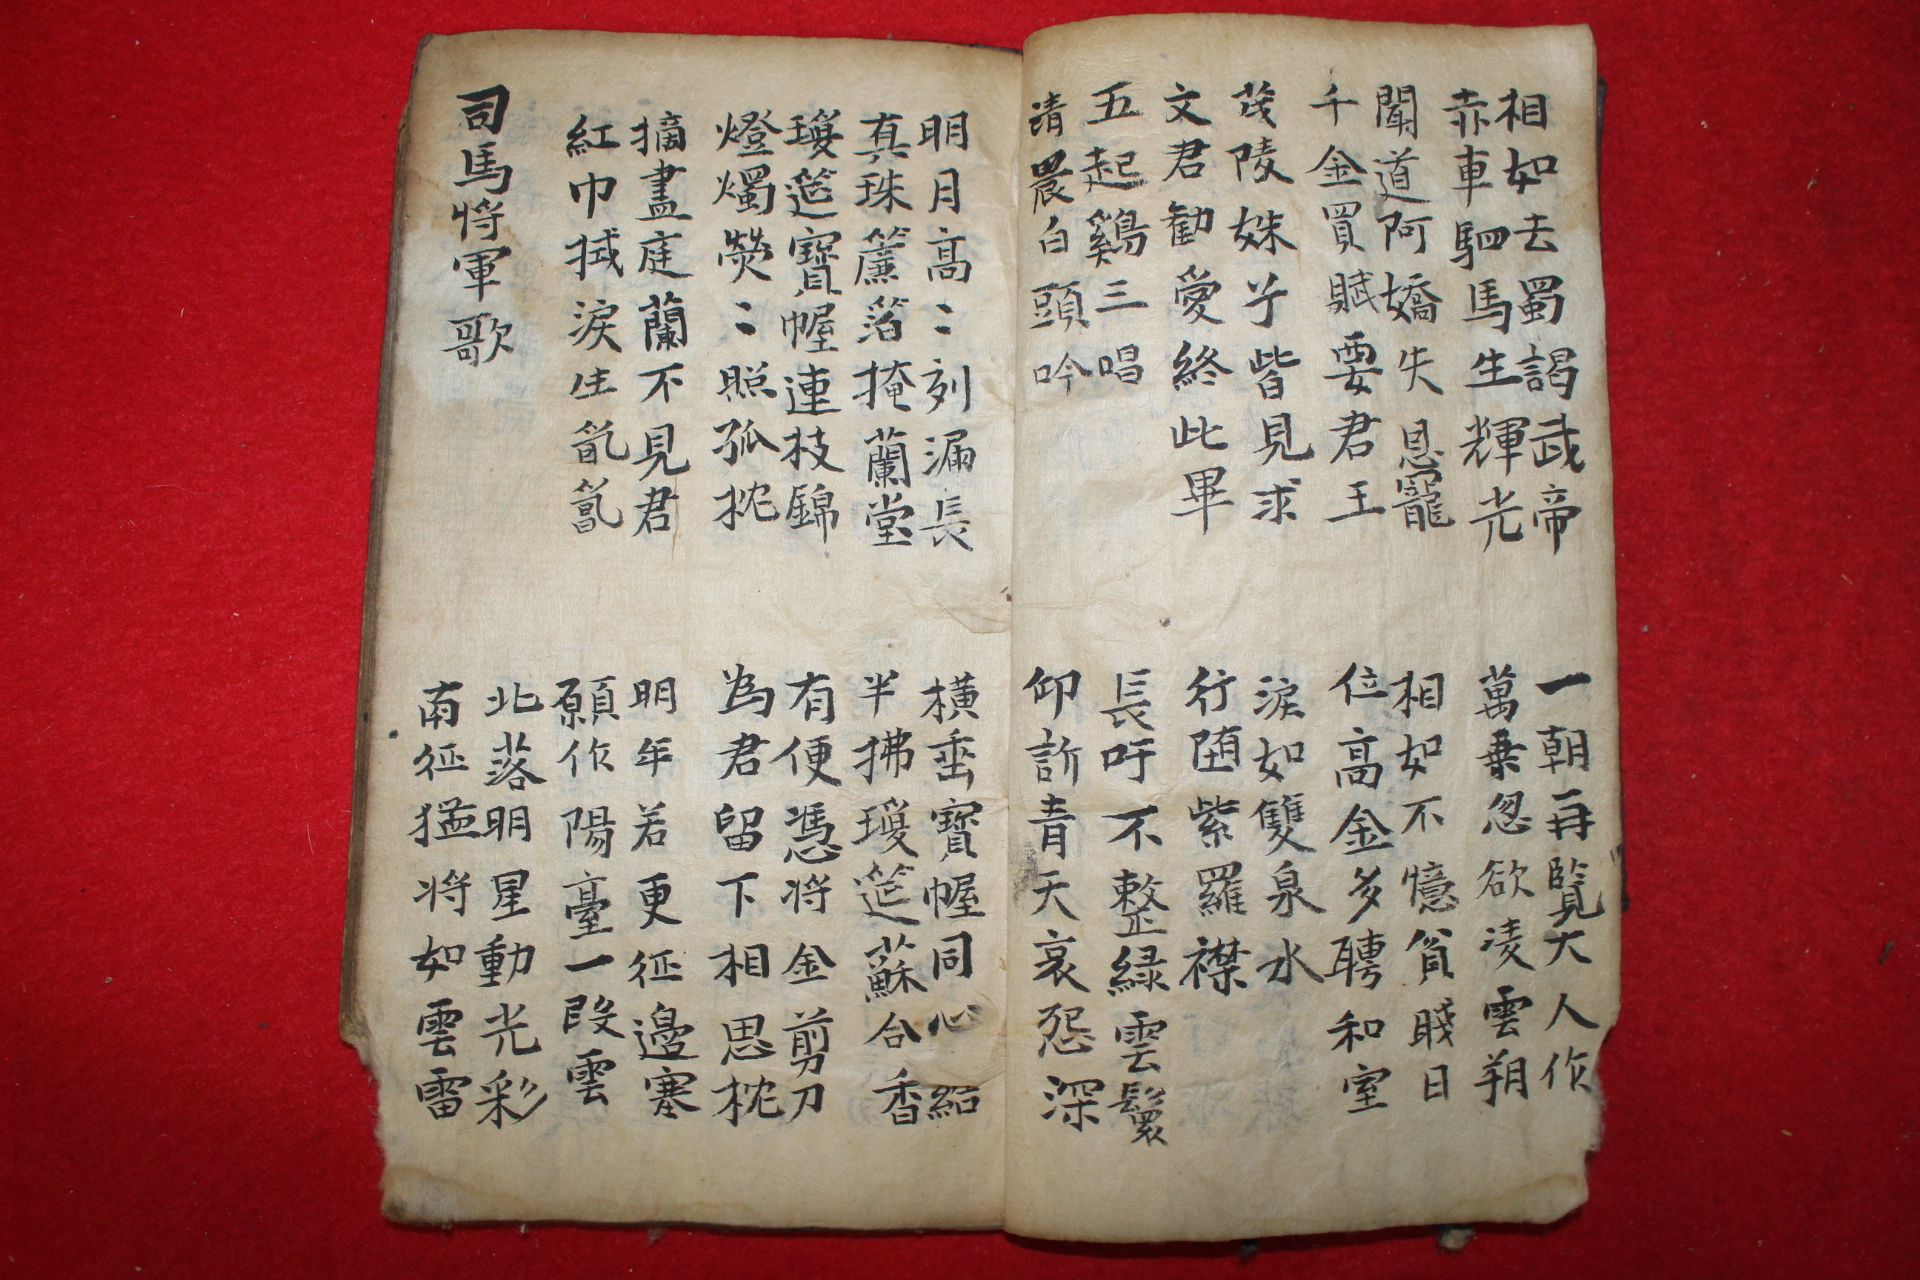 相如去蜀謁武帝
赤車駟馬生輝光
一朝再覽大人作
萬乗忽欲凌雲朔
聞道阿嬌失恩寵
千金買賦要君王
相如不憶貧賤日
位高金多聘和室
茂陵姝子皆見求
文君勸愛終此畢
淚如雙泉水
行堕紫羅襟
五起鷄三唱
清晨白頭吟
長吁不整緑雲鬟
仰訴青天哀怨深
明月高〻刻漏長
真珠簾箔掩蘭堂
橫垂寶幄同心結
半拂瓊筵蘇合香
瓊筵寶幄連枝錦
燈燭熒〻照孤枕
有便憑将金剪刀
為君留下相思枕
摘盡庭蘭不見君
紅巾拭淚生氤氳
明年若更征邊塞
願作陽臺一段雲
司馬将軍歌
北落明星動光彩
南征猛将如雲雷